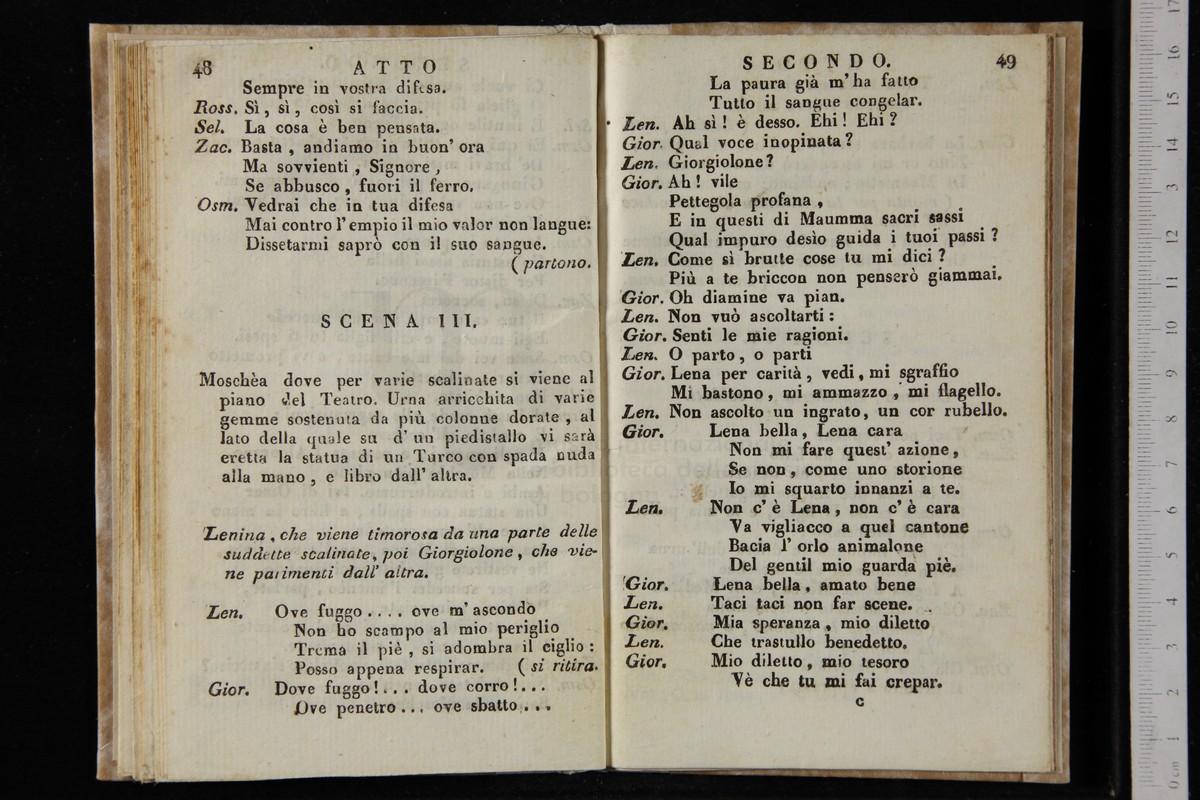 48
ATTO
Sempre in vostra difesa.
Ross. Sì, sì, così si faccia.
Sel. La cosa è ben pensata.
Zac. Basta, andiamo in buon' ora
Ma sovvienti, Signore,
Se abbusco, fuori il ferro.
Osm. Vedrai che in tua difesa
Mai contro l' empio il mio valor non langue:
Dissetarmi saprò con il suo sangue.
( partono.
SCENA III.
Moschèa dove per varie scalinate si viene al
piano del Teatro. Urna arricchita di varie
gemme sostenuta da più colonne dorate, al
lato della quale su d' un piedistallo vi sarà
eretta la statua di un Turco con spada nuda
alla mano, e libro dall' altra.
Lenina, che viene timorosa da una parte delle
suddette scalinate, poi Giorgiolone, che vie-
ne parimenti dall' altra.
Len. Ove fuggo.... ove m' ascondo
Non ho scampo al mio periglio
Trema il piè, si adombra il ciglio:
Posso appena respirar. ( si ritira.
Gior. Dove fuggo!... dove corro!...
Ove penetro... ove sbatto...
SECONDO.
49
La paura già m' ha fatto
Tutto il sangue congelar.
Len. Ah sì! è desso. Ehi! Ehi?
Gior. Qual voce inopinata?
Len. Giorgiolone?
Gior. Ah! vile
Pettegola profana,
E in questi di Maumma sacri sassi
Qual impuro desìo guida i tuoi passi?
Len. Come sì brutte cose tu mi dici?
Più a te briccon non penserò giammai.
Gior. Oh diamine va pian.
Len. Non vuò ascoltarti:
Gior. Senti le mie ragioni.
Len. O parto, o parti
Gior. Lena per carità, vedi, mi sgraffio
Mi bastono, mi ammazzo, mi flagello.
Len. Non ascolto un ingrato, un cor rubello.
Gior. Lena bella, Lena cara
Non mi fare quest' azione,
Se non, come uno storione
Io mi squarto innanzi a te.
Len. Non c' è Lena, non c' è cara
Va vigliacco a quel cantone
Bacia l' orlo animalone
Del gentil mio guarda piè.
Gior. Lena bella, amato bene
Len. Taci taci non far scene.
Gior. Mia speranza, mio diletto
Len. Che trastullo benedetto.
Gior. Mio diletto, mio tesoro
Vè che tu mi fai crepar.
C